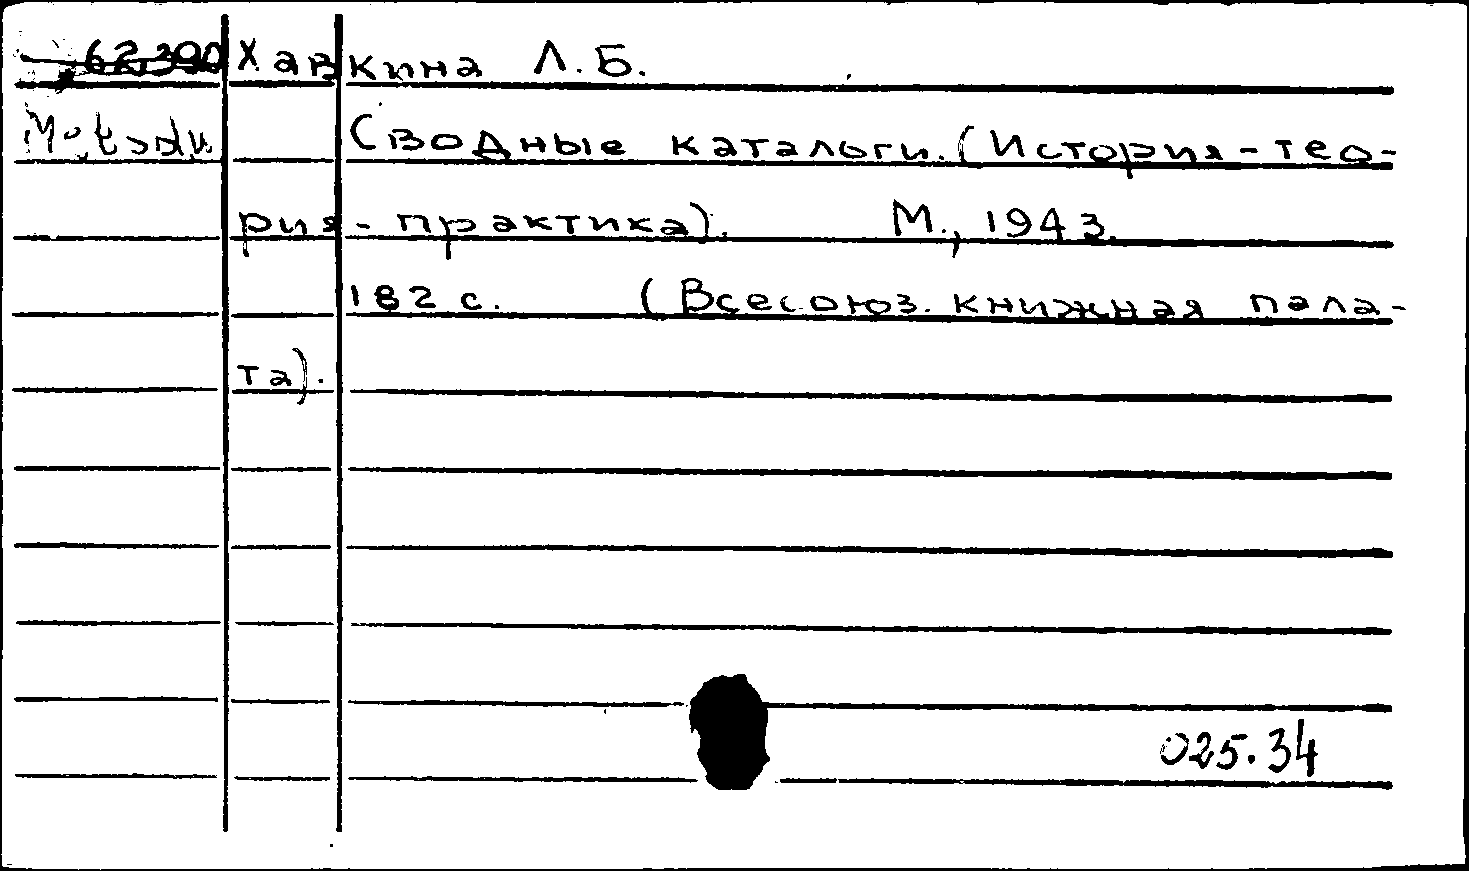 62.390 Хавкина Л.Б.
Сводные каталоги. (История-тео-
рия-практика). М., 1943.
182 с. (Всесоюз. книжная пала-
та).
025.34